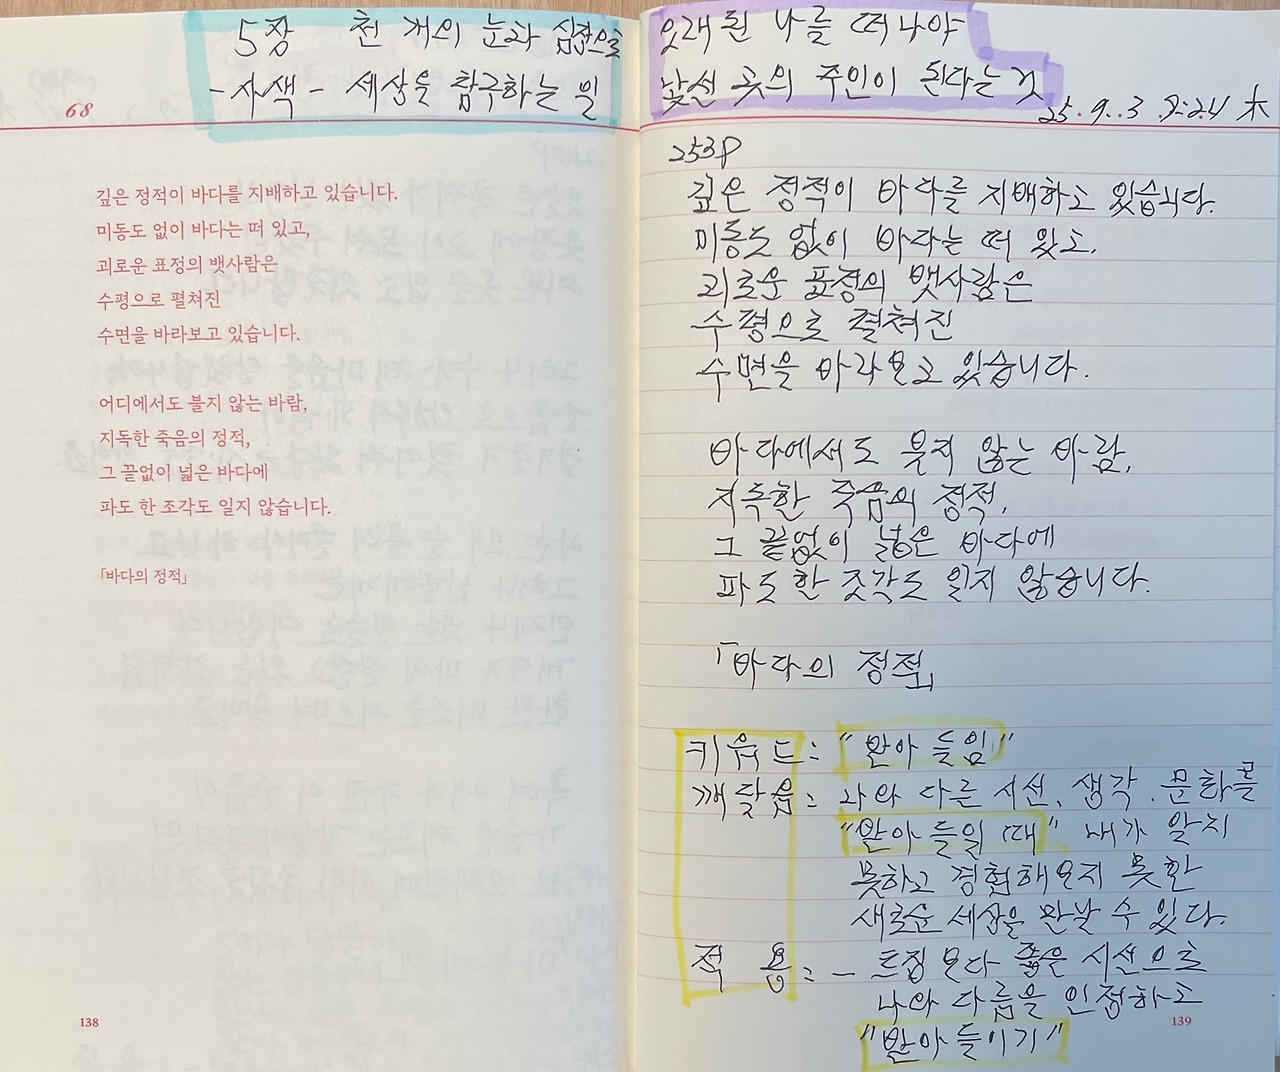 5장 천 개의 눈과 심장으로
-사색- 세상을 탐구하는 일
68
깊은 정적이 바다를 지배하고 있습니다.
미동도 없이 바다는 떠 있고,
괴로운 표정의 뱃사람은
수평으로 펼쳐진
수면을 바라보고 있습니다.
어디에서도 불지 않는 바람,
지독한 죽음의 정적,
그 끝없이 넓은 바다에
파도 한 조각도 일지 않습니다.
「바다의 정적」
138
오래된 나를 떠나야
낯선 곳의 주인이 된다는 것
25.9.3 9:24 木
253P
깊은 정적이 바다를 지배하고 있습니다.
미동도 없이 바다는 떠 있고,
괴로운 표정의 뱃사람은
수평으로 펼쳐진
수면을 바라보고 있습니다.
바다에서도 불지 않는 바람,
지독한 죽음의 정적,
그 끝없이 넓은 바다에
파도 한 조각도 일지 않습니다.
「바다의 정적」
키워드 : "받아 들임"
깨달음 : 나와 다른 시선, 생각, 문화를
"받아 들일 때" 내가 알지
못하고 경험해오지 못한
새로운 세상을 만날 수 있다.
적 용 : - 트집 보다 좋은 시선으로
나와 다름을 인정하고
139
"받아 들이기"